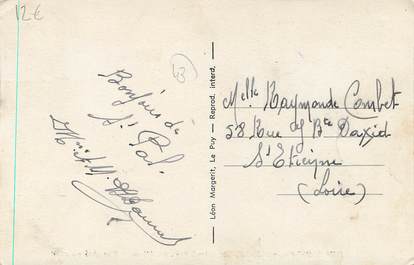 12€
13
Bonjour de
St Pal
M. et M.
Léon Margerit, Le Puy — Reprod. interd.
Melle Raymonde Combet
58 Rue Bte David
St Etienne
(Loire)